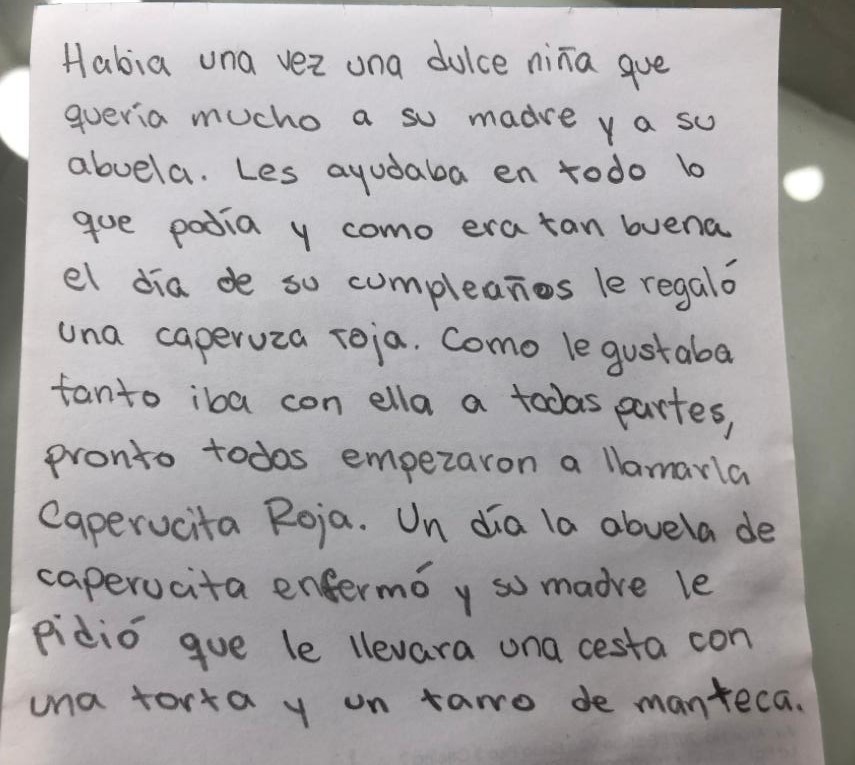 Habia una vez una dulce niña que
quería mucho a su madre y a su
abuela. Les ayudaba en todo lo
que podía y como era tan buena
el día de su cumpleaños le regaló
una caperuza roja. Como le gustaba
tanto iba con ella a todas partes,
pronto todos empezaron a llamarla
Caperucita Roja. Un día la abuela de
caperucita enfermó y su madre le
pidió que le llevara una cesta con
una torta y un tarro de manteca.